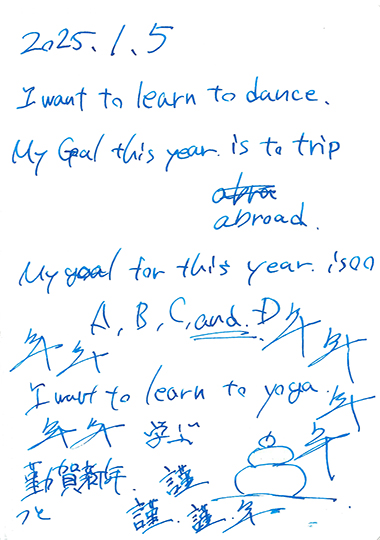 2025.1.5
I want to learn to dance.
My Goal this year. is to trip
abroad.
My goal for this year. is○○
A, B, C, and. D 年
年 年 年
I want to learn to yoga. 年
年 年 学ぶ 年
勤賀新年. 謹
つと 謹. 謹. 年